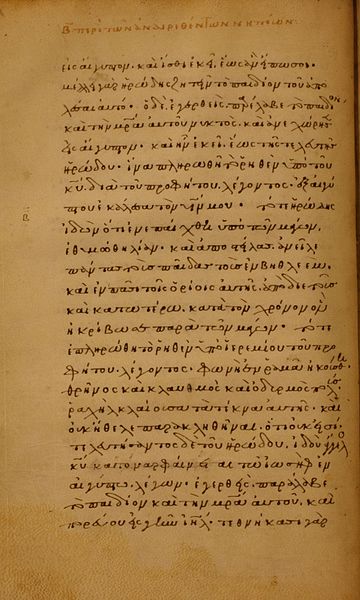 Β περὶ τῶν ἀναιρεθέντων νηπίων
εἰς αἴγυπτον· καὶ ἴσθι ἐκεῖ, ἕως ἂν εἴπω σοι·
μέλλει γὰρ ἡρώδης ζητεῖν τὸ παιδίον τοῦ ἀπο
λέσαι αὐτό· ὁ δὲ, ἐγερθεὶς παρέλαβε τὸ παιδίον
καὶ τὴν μρα αὐτοῦ νυκτὸς· καὶ ἀνεχώρησεν
εἰς αἴγυπτον· καὶ ἦν ἐκεῖ ἕως τῆς τελευτῆς
ἡρώδου· ἵνα πληρωθῆ τὸ ῥηθὲν ὑπὸ τοῦ
κυ διὰ τοῦ προφήτου, λέγοντος· ἐξ αἰγύ
πτου ἐκάλεσα τὸν υἱόν μου· τότε ἡρώδης
Β
ἰδὼν ὅτι ἐνεπαίχθη ὑπὸ τῶν μάγων,
ἐθυμώθη λίαν· καὶ ἀποστείλας, ἀνεῖλε
πάντας τοὺς παῖδας τοὺς ἐν βηθλεὲμ,
καὶ ἐν πᾶσι τοῖς ὁρίοις αὐτῆς, ἀπὸ διετοῦς
καὶ κατωτέρω, κατὰ τὸν χρόνον ὃν
ἠκρίβωσε παρὰ τῶν μάγων· τότε
ἐπληρώθη τὸ ῥηθὲν ὑπὸ ἱερεμίου τοῦ προ
φήτου, λέγοντος· φωνὴ ἐν ῥαμᾶ ἠκούσθη
θρῆνος καὶ κλαυθμὸς καὶ ὀδυρμὸς πολύς
ῥαχὴλ κλαίουσα τὰ τέκνα αὐτῆς· καὶ
οὐκ ἤθελε παρακληθῆναι, ὅτι οὐκ εἰσί·
τελευτήσαντος δὲ τοῦ ἡρώδου, ἰδοὺ ἄγγελος
κυ κατ' ὄναρ φαίνεται τῶ ἰωσὴφ ἐν
αἰγύπτω, λέγων· ἐγερθεὶς, παράλαβε
τὸ παιδίον καὶ τὴν μρα αὐτοῦ, καὶ
πορεύου εἰς γῆν ιηλ· τεθνήκασι γὰρ